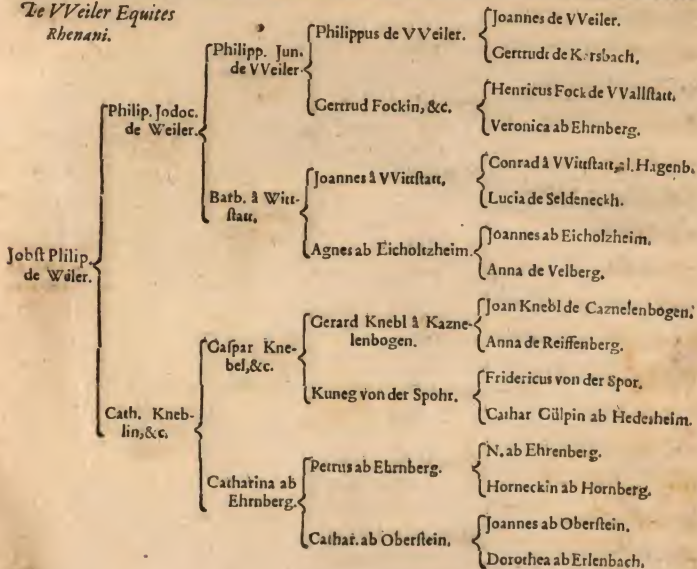 De VVeiler Equites
Rhenani.
Jobst Plilip.
de Weiler.
Philip. Jodoc.
de Weiler.
Cath. Kneb-
lin, &c.
Philipp. Jun.
de VVeiler
Barb. â Witt-
statt.
Caspar Kne-
bel, &c.
Catharina ab
Ehrnberg.
Philippus de VVeiler.
Gertrud Fockin, &c.
Joannes â VVittstatt,
Agnes ab Eicholtzheim.
Gerard Knebl â Kazne-
lenbogen.
Kuneg von der Spohr.
Petrus ab Ehrnberg.
Cathar. ab Oberstein.
Joannes de VVeiler.
Gertrude de Kersbach.
Henricus Fock de VVallstatt.
Veronica ab Ehrnberg.
Conrad â VVittstatt, al. Hagenb.
Lucia de Seldeneckh.
Joannes ab Eicholzheim.
Anna de Velberg.
Joan Knebl de Caznelenbogen.
Anna de Reiffenberg.
Fridericus von der Spor.
Cathar Gülpin ab Hedesheim.
N. ab Ehrenberg.
Horneckin ab Hornberg.
Joannes ab Oberstein.
Dorothea ab Erlenbach.